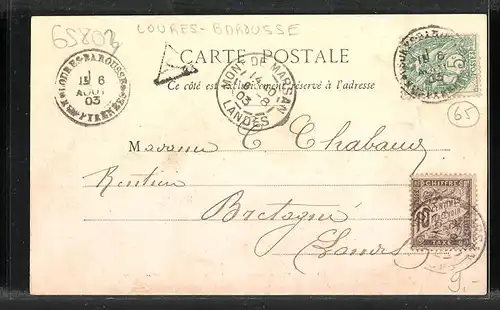 65809
LOURES-BAROUSSE
CARTE POSTALE
Ce côté est exclusivement réservé à l'adresse
LOURES-BAROUSSE
15 6
AOUT
03
HTES PYRENEES
MONT DE MARSAN
14
8
03
LANDES
5
65
Madame C Chabaux
Rentier
Bretagne
Landes
CHIFFRE
10
CENTIMES
A PERCEVOIR
TAXE
9.-